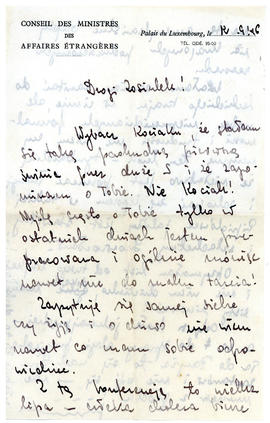 CONSEIL DES MINISTRES
DES
AFFAIRES ÉTRANGÈRES
Palais du Luxembourg, le
TÉL. ODÉ. 95-00
Drogi
Wybacz Kociaku, że stałam
się taką paskudną pierwszą
świnią przez dnie i że zapo-
minam o Tobie. Nie Kociaku!
Myślę często o Tobie tylko w
ostatnich dniach jestem prze-
pracowana i ogólnie mówiąc
nawet nie do
Zapytuję się samej siebie
czy żyję i długo nie wiem
nawet co mam sobie odpo-
wiedzieć.
Z tą konferencją to wielka
lipa – człeka cholera bierze